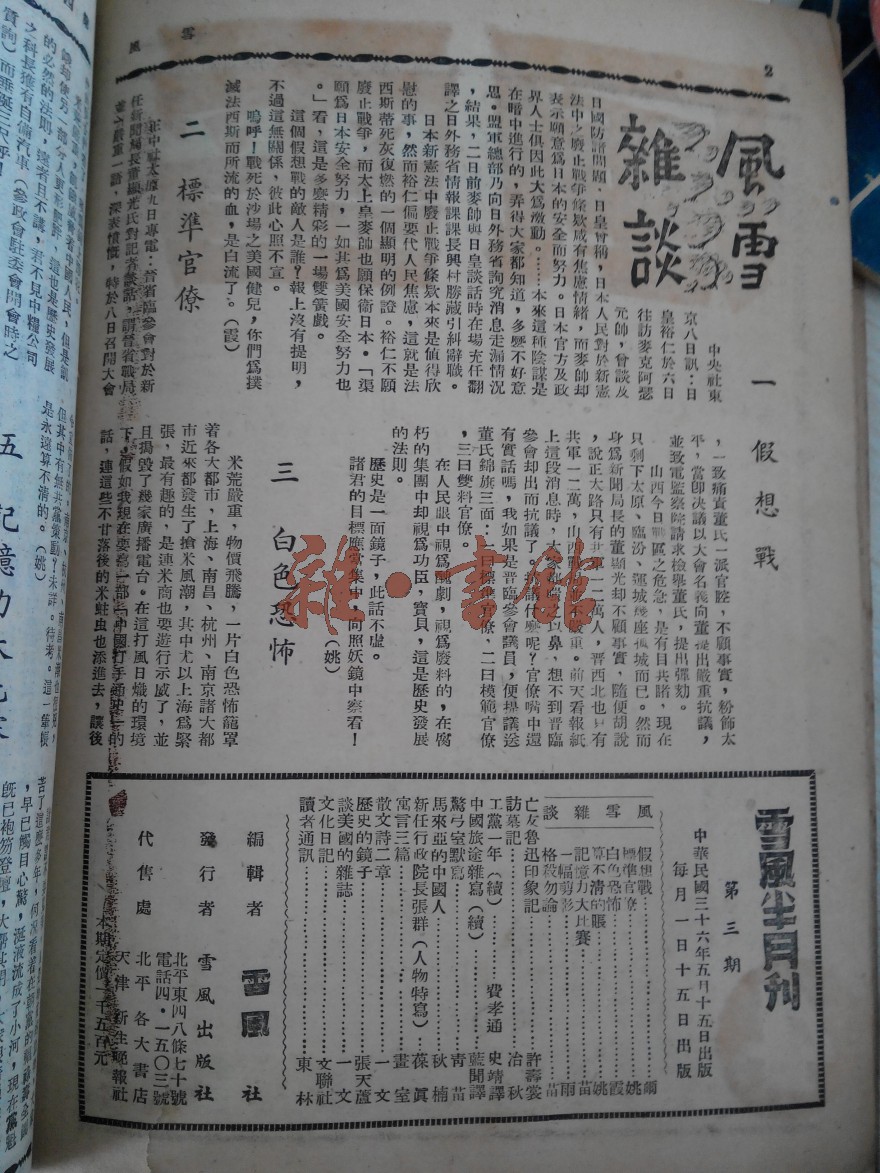 2
雪風
風雪雜談
一 假想戰
中央社東
京八日訊:日
皇裕仁於六日
往訪麥克阿瑟
元帥,曾談及
日國防諸問題、日皇曾稱,日本人民對於新憲
法中之廢止戰爭條欵咸有焦慮情緒,而麥帥却
表示願意爲日本的安全而努力。日本官方及政
界人士俱因此大爲激動。……本來這種陰謀是
在暗中進行的,弄得大家都知道,多麼不好意
思。盟軍總部乃向日外務省詢究消息走漏情況
,結果,二日前麥帥與日皇談話時在場充任翻
譯之日外務省情報課課長興村勝藏引糾辭職。
日本新憲法中廢止戰爭條欵本來是値得欣
慰的事,然而裕仁偏要代人民焦慮,這就是法
西斯蒂死灰復燃的一個顯明的例證。裕仁不願
廢止戰爭,而太上皇麥帥也願保衛日本。「渠
願爲日本安全努力,一如其爲美國安全努力也
。」看,這是多麼精彩的一場雙簧戲。
這個假想戰的敵人是誰?報上沒有提明,
不過這無關係,彼此心照不宣。
嗚呼!戰死於沙場之美國健兒,你們爲撲
滅法西斯而所流的血,是白流了。(霞)
二 標準官僚
中社太原九日專電:晉省臨參會對於新
任新聞局長董顯光氏對記者談話,謂晉省戰局
並不嚴重一語,深表憤慨,特於八日召開大會
,一致痛責董氏一派官腔,不顧事實,粉飾太
平,當卽決議以大會名義向董提出嚴重抗議,
並致電監察院請求檢舉董氏,提出彈劾。
山西今日戰區之危急,是有目共睹,現在
只剩下太原、臨汾、運城幾座孤城而已。然而
身爲新聞局長的董顯光却不顧事實,隨便胡說
,說正太路只有共軍一二萬人,晋西北也只有
共軍一二萬,山西戰局並不嚴重。前天看報紙
上這段消息時,大家都嗤之以鼻、想不到晋臨
參會却出而抗議了。抗議什麼呢?官僚嘴中還
有實話嗎,我如果是晋臨參會議員,便提議送
董氏錦旗三面:一曰標準官僚,二曰模範官僚
,三曰雙料官僚。
在人民眼中視爲醜劇,視爲廢料的,在腐
朽的集團中却視爲功臣,寶貝,這是歷史發展
的法則。
歷史是一面鏡子,此話不虛。
諸君的目標應當集中,向照妖鏡中察看!
(姚)
三 白色恐怖
米荒嚴重,物價飛騰,一片白色恐怖籠罩
着各大都市,上海、南昌、杭州、南京諸大都
市近來都發生了搶米風潮,其中尤以上海爲緊
張,最有趣的,是連米商也要遊行示威了,並
且搗毀了幾家廣播電台。在這打風日熾的環境
下,假如我現在要寫一部「中國打手通史」的
話,連這些不甘落後的米蛀虫也添進去,讓後
雪風半月刊
第三期
中華民國三十六年五月十五日出版
每月一日十五日出版
風雪雜談
假想戰……霞
標準官僚……姚
白色恐怖……霞
算不清的賬……姚
記憶力大比賽……苗
一幅剪影……雨
格殺勿論……苗
亡友魯迅印象記……許壽裳
訪墓記……冶秋
工黨一年(續)……史靖譯
中國旅途雜寫(續)……費孝通
驚弓室默寫……青苗
馬來亞的中國人……秋楠
新任行政院長張群(人物特寫)……葆眞
寓言三篇……畫室
散文詩二章……一文
歷史的鏡子……張天蘆
談美國的雜誌……一文
文化日記……文聯社
讀者通訊……東林
編輯者 雪風社
發行者 雪風出版社
北平東四八條七十號
電話四·一五〇三號
代售處 北平各大書店
天津新生晚報社
本期定價一千五百元
雜·書館